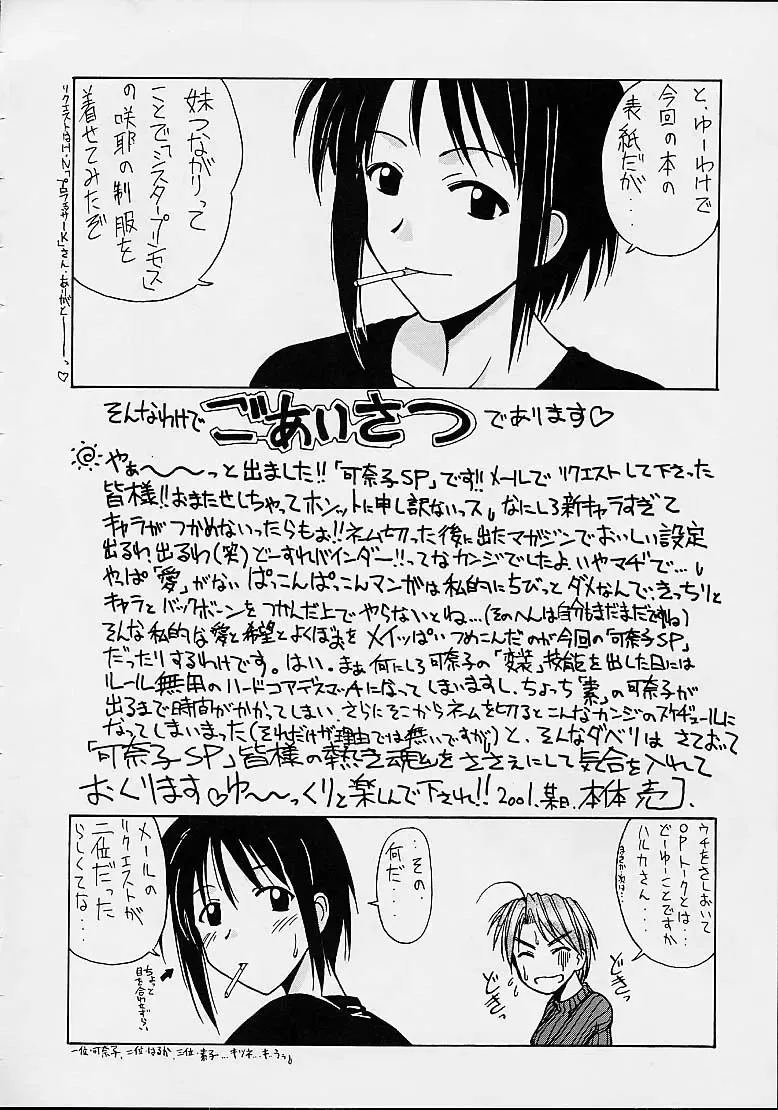 と、ゆーわけで
今回の本の
表紙だが...
妹つながりって
ことで「シスタープリンセス」
の咲耶の制服を
着せてみたぞ
そんなわけで ごあいさつ であります♡
やぁ〜〜〜っと出ました!!「可奈子SP」です!!メールでリクエストして下さった
皆様!!おまたせしちゃってホンットに申し訳ないっス なにしろ新キャラすぎて
キャラがつかめないったらもぉ!!ネーム切った後に出たマガジンでおいしい設定
出るわ、出るわ(笑)どーすれバインダー!!ってなカンジでしたよ、いやマヂで...
やっぱ「愛」がない ぱっこんぱっこんマンガは私的にちびっとダメなんで、きっちりと
キャラとバックボーンをつかんだ上でやらないとね...(そのへんは自分もまだまだですね)
そんな私的な愛と希望とよくぼおをメイッぱいつめこんだのが今回の「可奈子SP」
だったりするわけです。はい。まぁ何にしろ可奈子の「変装」技能を出した日には
ルール無用のハードコアデスマッチになってしまいますし、ちょっち「素」の可奈子が
出るまで時間がかかってしまい さらにそこからネームを切るとこんなカンジのスケヂュールに
なってしまいまった(それだけが理由では無いですが)と、そんなダベリはさておいて
「可奈子SP」皆様の熱き魂をささえにして気合を入れて
おくります♡ゆ〜〜っくりと楽しんで下され!!2001.某日.本体 売].
ウチをさしおいて
OPトークとは...
どーゆーことですか
ハルカさん...
...その
何だ...
どきっ
どきっ
メールの
リクエストが
二位だった
らしくてな...
ちょっと
目を合わせずらい
一位・可奈子、二位・はるか、三位・素子...キツネ...キ...うぅ